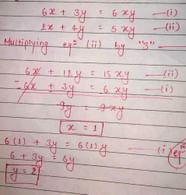 6x + 3y = 6xy —(i)
2x + 4y = 5xy —(ii)
Multiplying eqⁿ (ii) by "3"
6x + 12y = 15xy —(ii)
-6x + 3y = 6xy —(i)
9y = 9xy
x = 1
6(1) + 3y = 6(1)y —(i)
6 + 3y = 6y
y = 2